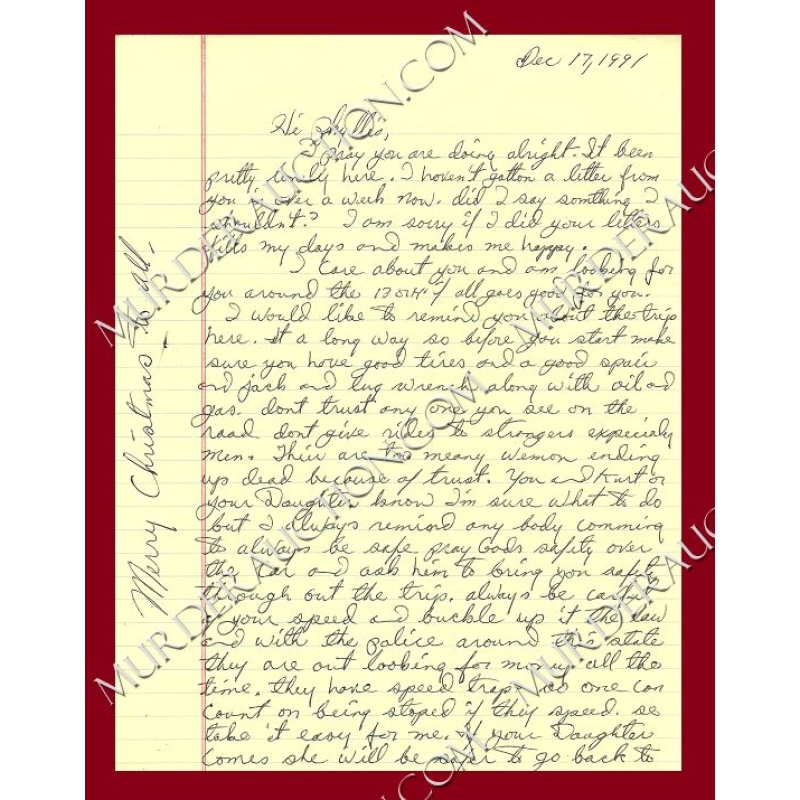 Dec 17, 1991
Hi Phyllis,
I pray you are doing alright. It been
pretty lonely here. I haven't gotton a letter from
you in over a week now. did I say somthing I
shouldn't? I am sorry if I did your letters
fills my days and makes me happy.
I Care about you and am looking for
you around the 13 or 14 if all goes good for you.
I would like to remind you about the trip
here. It a long way so before you start make
sure you have good tires and a good spair
and jack and lug wrench along with oil and
gas. dont trust any one you see on the
road dont give rides to strangers expecialy
men. Thier are too meany wemon ending
up dead because of trust. You and Kurt or
your Daughter know I'm sure what to do
but I always remind any body comming
to always be safe pray Gods safity over
the car and ask him to bring you safity
through out the trip. always be carful
of your speed and buckle up it the law
and with the police around this state
they are out looking for money all the
time. they have speed traps no one can
count on being stoped if they speed. so
take it easy for me. if your Daughter
comes she will be to go back to
Merry Christmas to all.
MURDERAUCTION.COM